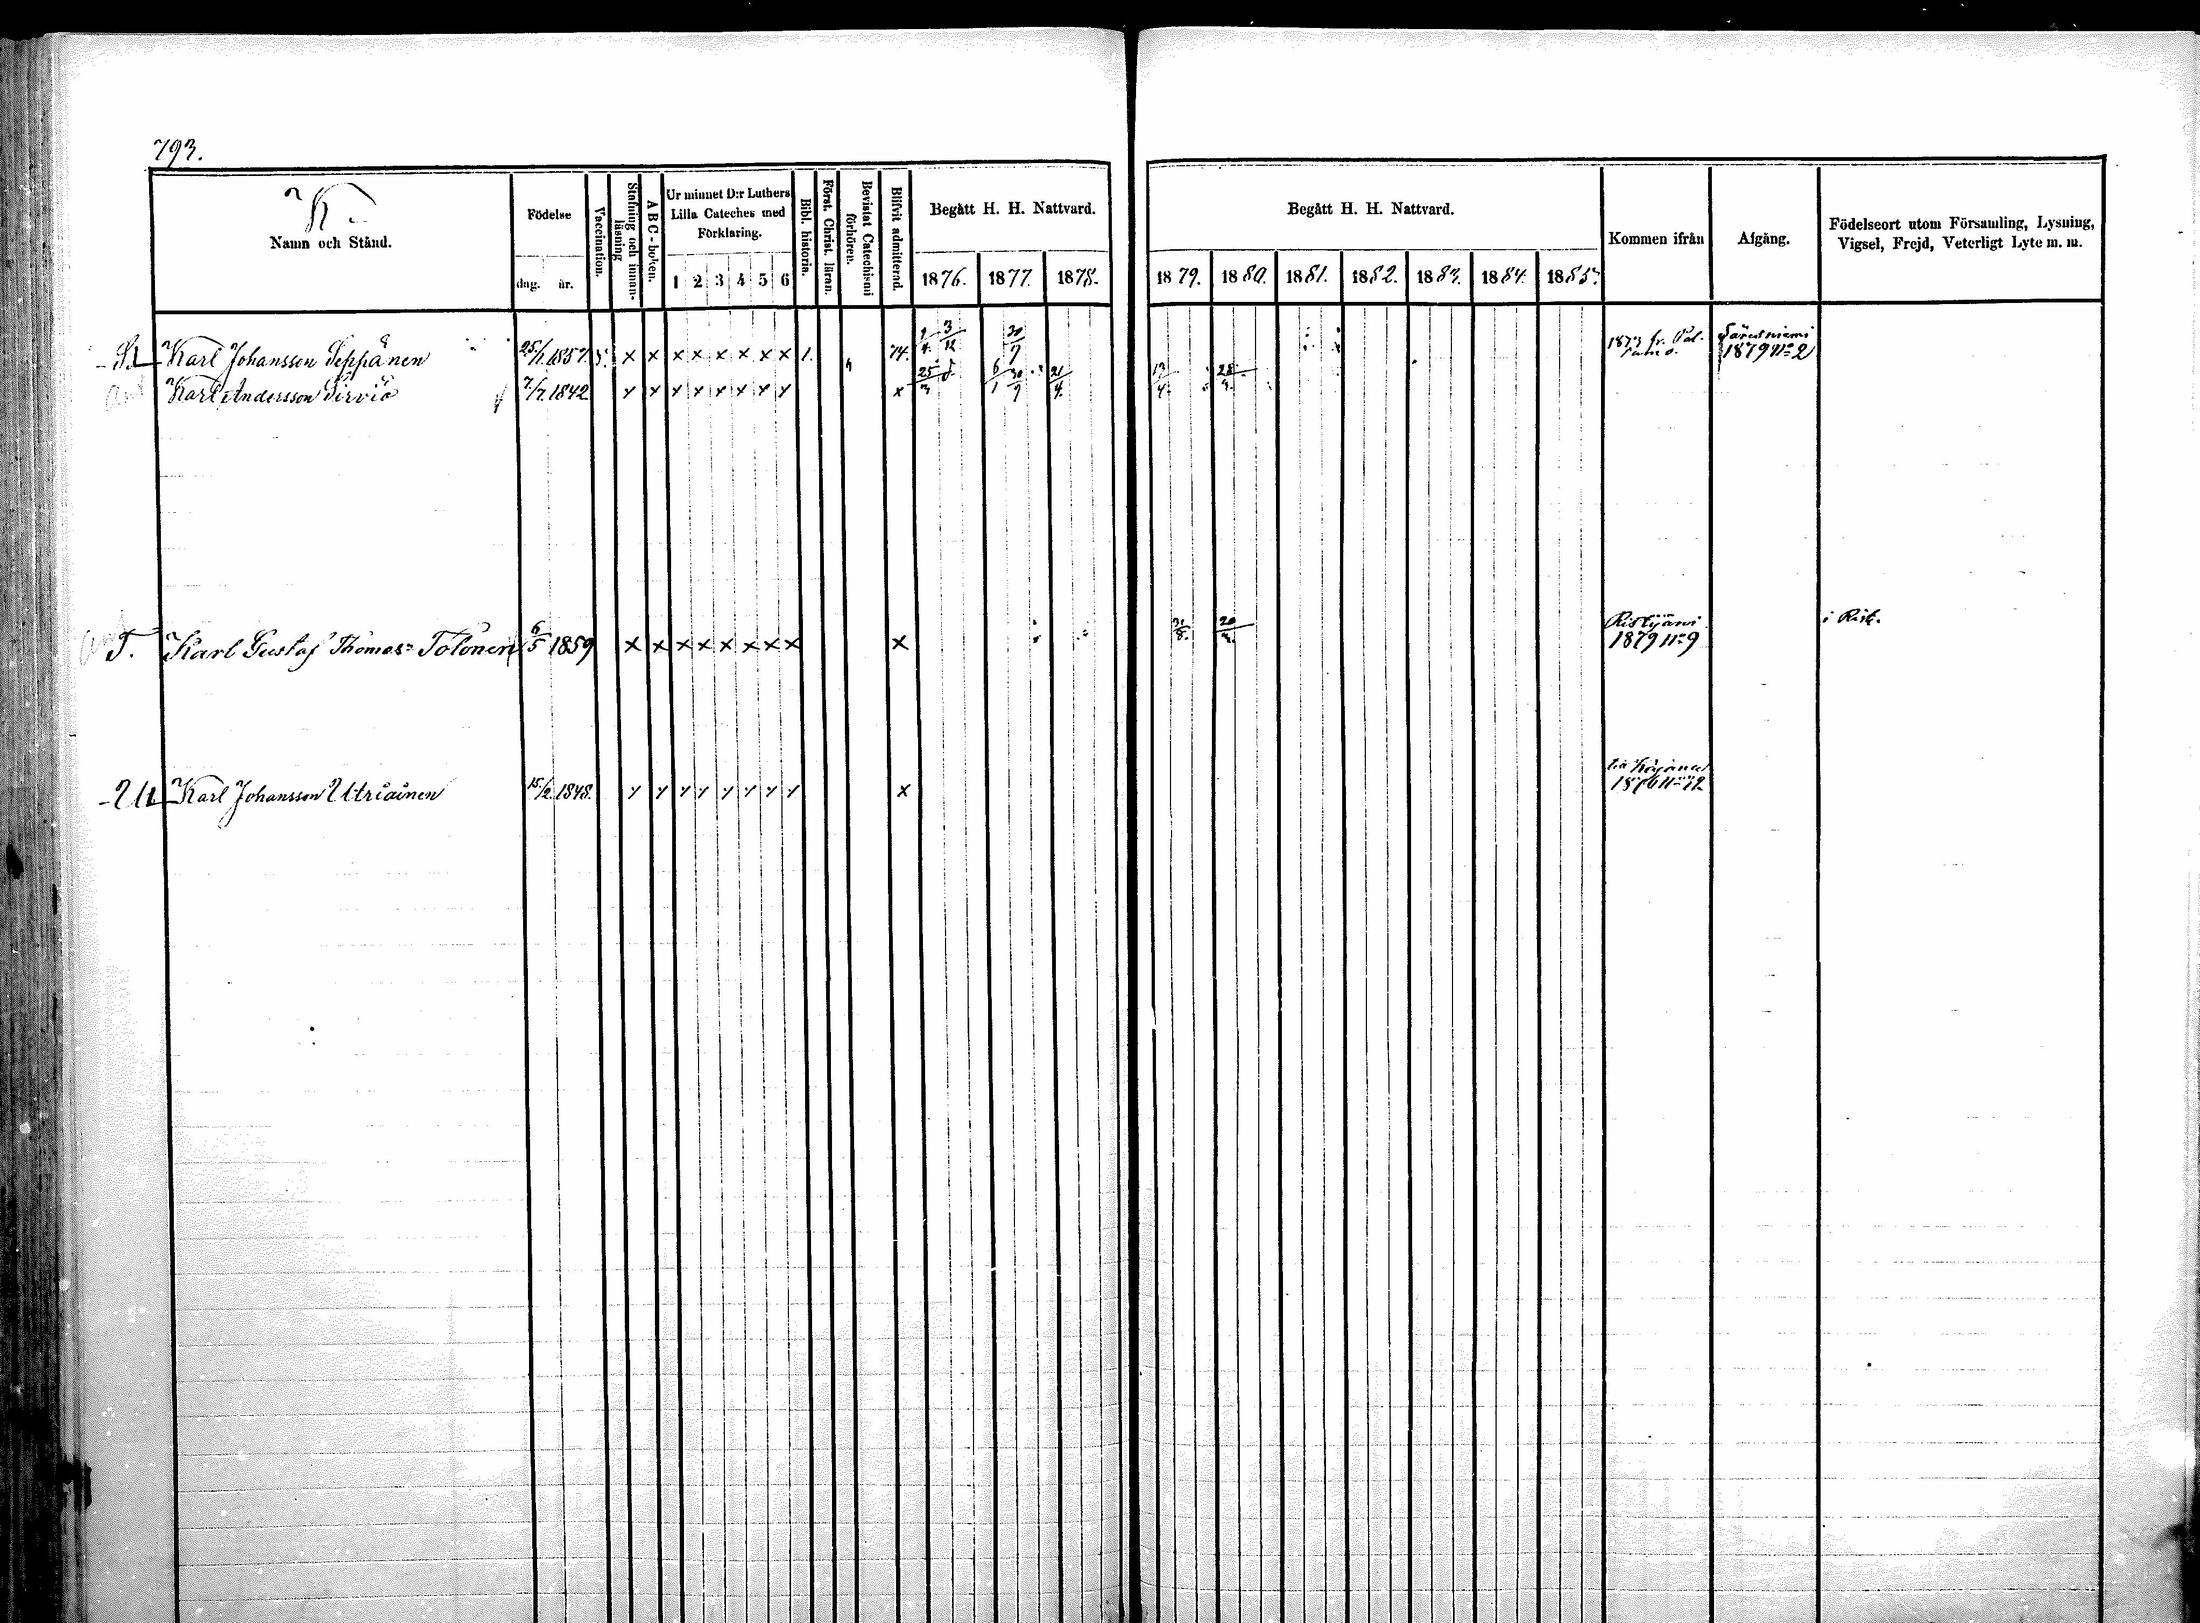 793.
K
Namn och Stånd.
Födelse
dag. år.
Vaccination.
Stafning och innanläsning
ABC-boken.
Ur minnet D:r Luthers
Lilla Cateches med
Förklaring.
1 2 3 4 5 6
Bibl. historia.
Först. Christ. läran.
Bevistat Catechismi förhören.
Blifvit admitterad.
Begått H. H. Nattvard.
1876. 1877. 1878.
Begått H. H. Nattvard.
1879. 1880. 1881. 1882. 1883. 1884. 1885.
Kommen ifrån
Afgång.
Födelseort utom Församling, Lysning,
Vigsel, Frejd, Veterligt Lyte m. m.
S. Karl Johansson Seppänen 25/1 1857. x x x x x x x x 1. 74. 3/12 30/9 1873 fr. Pal-tamo. Säresniemi 1879 No 2
Karl Andersson Sirviö 7/7 1842 x x x x x x x x x 25/3 6/1 30/9 21/4 13/4 28/3
T. Karl Gustaf Thomass Tolonen 6/5 1859 x x x x x x x x x 31/8 20/3 Ristijärvi 1879 No 9 i Rist.
U Karl Johansson Utriainen 15/2 1848. x x x x x x x x x Kajana 1876 No 12